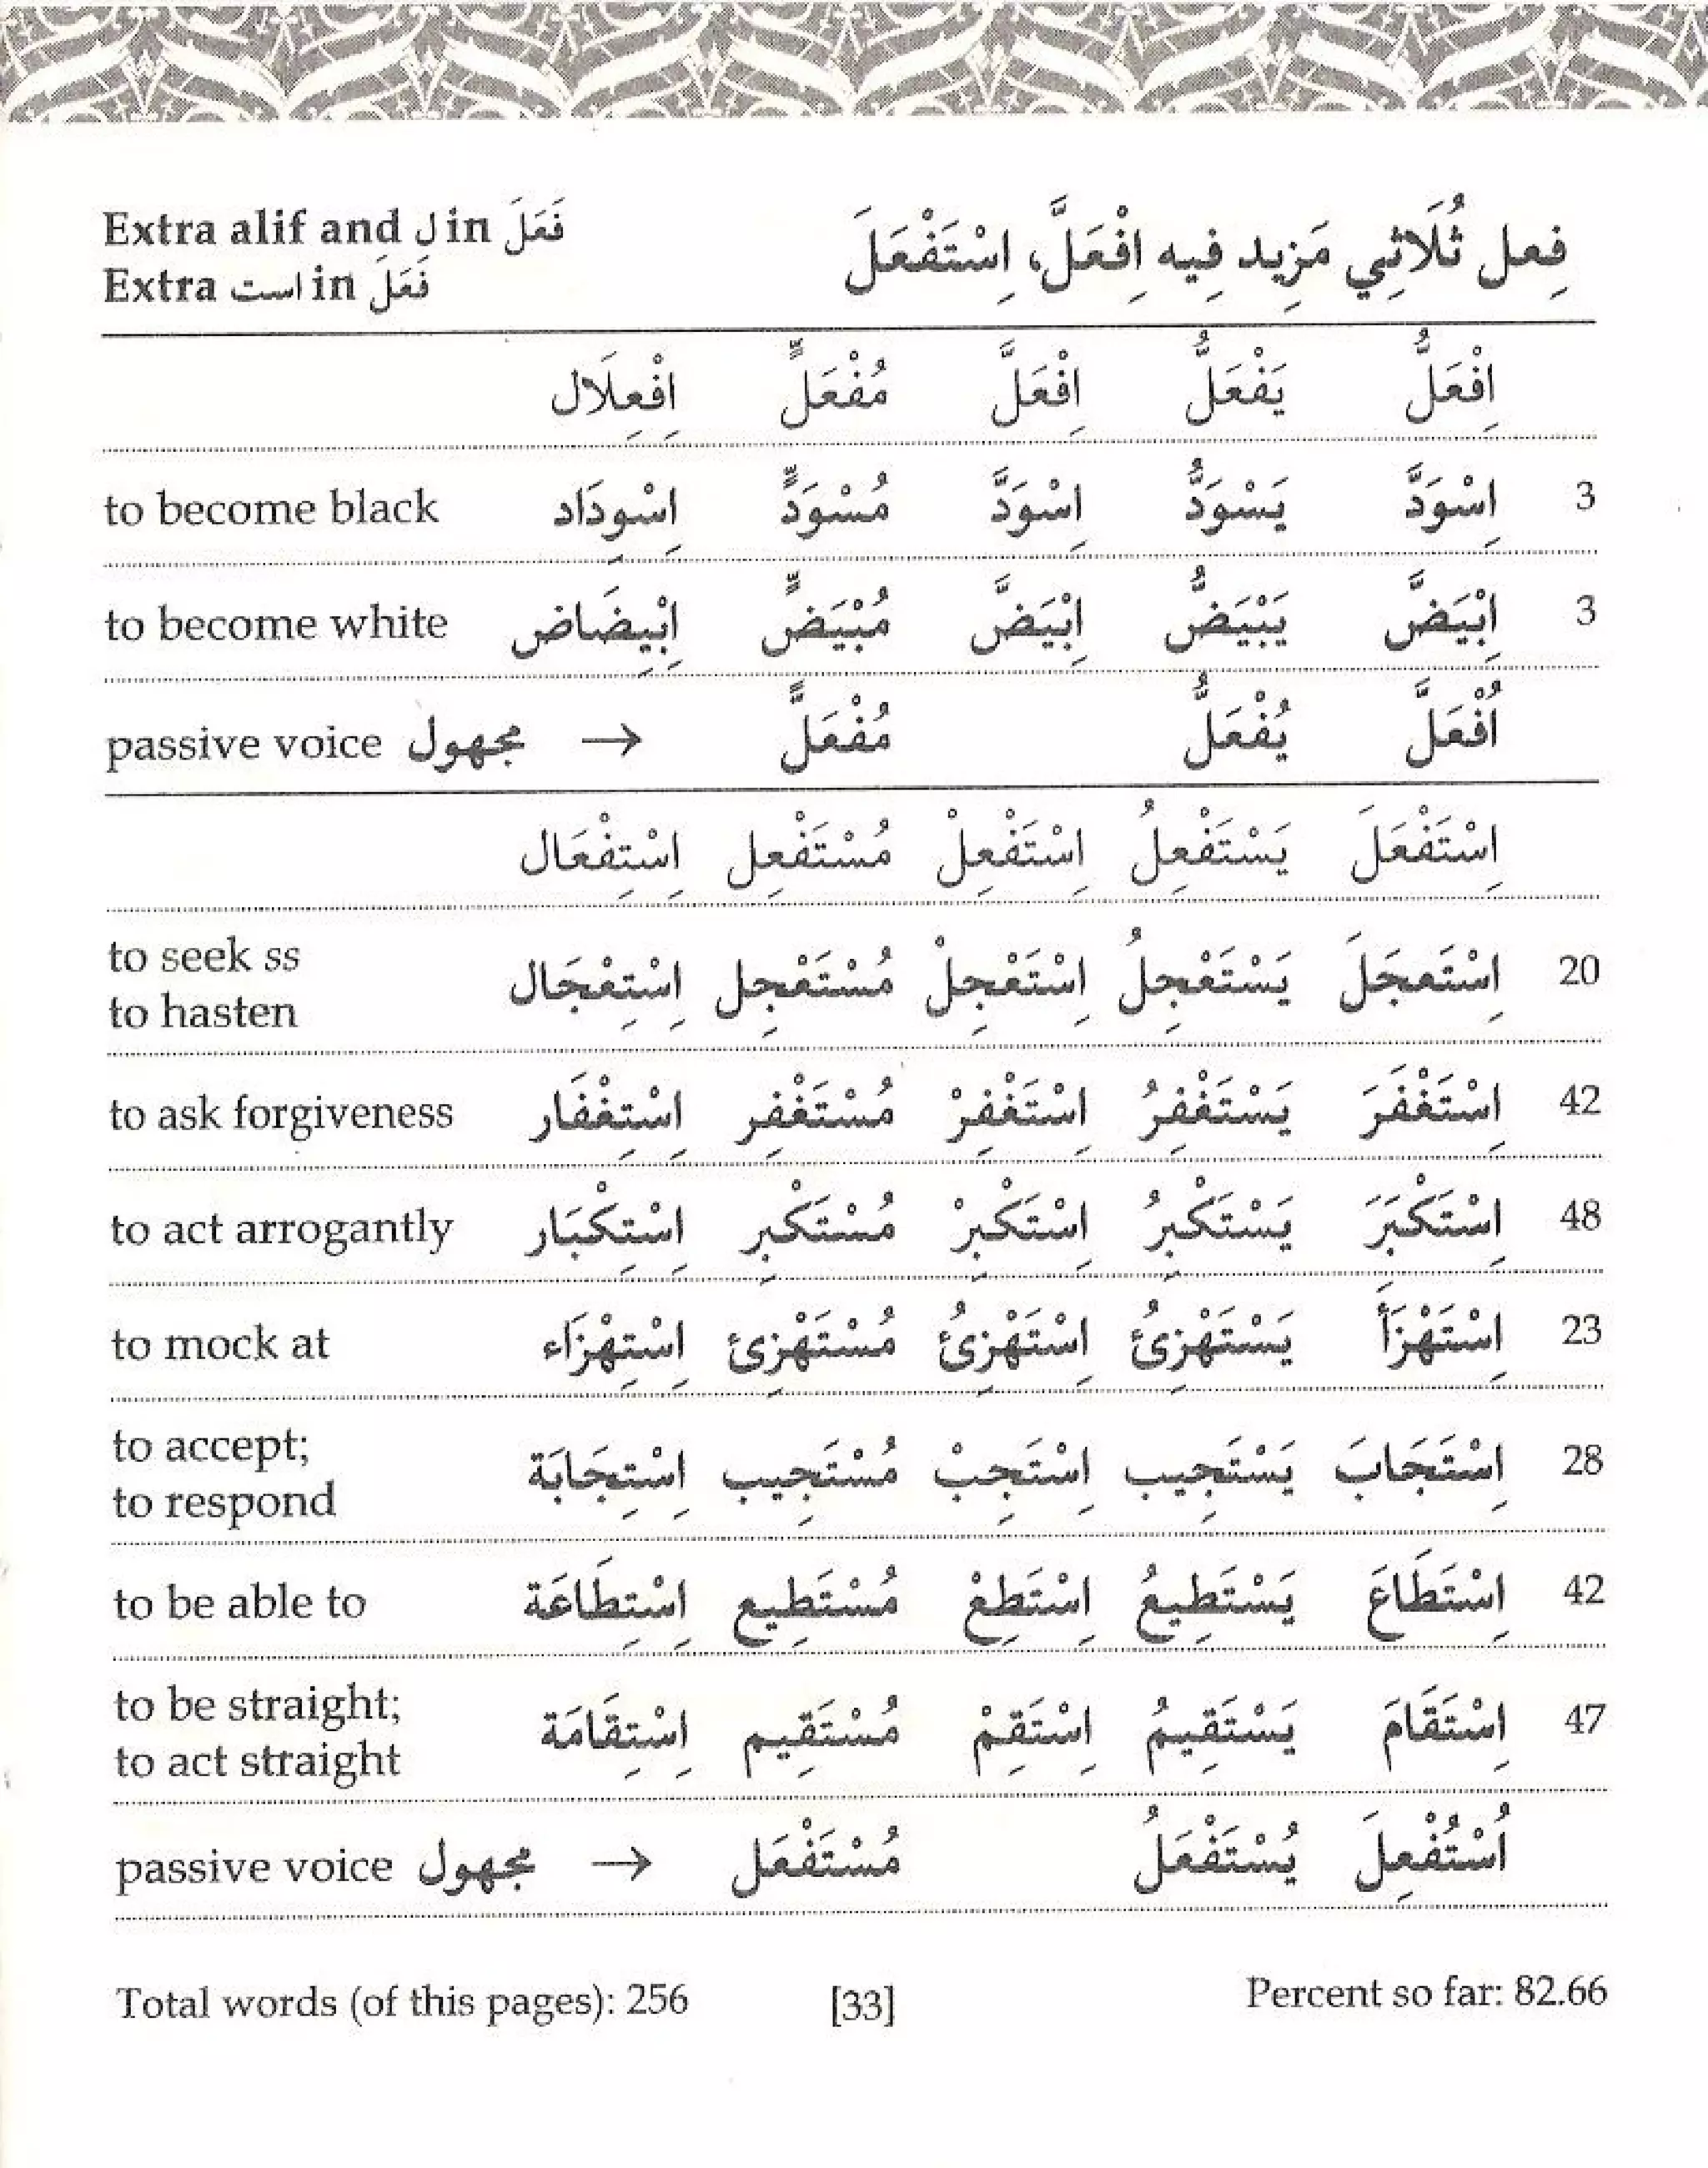 Extra alif and ل in فَعَلَ
Extra است in فَعَلَ
فِعل ثُلَاثِي مَزِيد فِيه اِفْعَلَّ، اِسْتَفْعَلَ
اِفْعَلُّ يَفْعَلُّ اِفْعَلَّ مُفْعَلٌّ اِفْعِلَال
3 اِسْوَدَّ يَسْوَدُّ اِسْوَدَّ مُسْوَدٌّ اِسْوِدَاد to become black
3 اِبْيَضَّ يَبْيَضُّ اِبْيَضَّ مُبْيَضٌّ اِبْيِضَاض to become white
اُفْعَلَّ يُفْعَلُّ مُفْعَلٌّ → passive voice مجهول
اِسْتَفْعَلَ يَسْتَفْعِلُ اِسْتَفْعِلْ مُسْتَفْعِل اِسْتِفْعَال
to seek ss
20 اِسْتَعجَلَ يَسْتَعْجِلُ اِسْتَعْجِلْ مُسْتَعْجِل اِسْتِعْجَال
to hasten
42 اِسْتَغْفَرَ يَسْتَغْفِرُ اِسْتَغْفِرْ مُسْتَغْفِر اِسْتِغْفَار to ask forgiveness
48 اِسْتَكْبَرَ يَسْتَكْبِرُ اِسْتَكْبِرْ مُسْتَكْبِر اِسْتِكْبَار to act arrogantly
23 اِسْتَهْزَأَ يَسْتَهْزِئُ اِسْتَهْزِئُ مُسْتَهْزِئ اِسْتِهْزَاء to mock at
to accept;
28 اِسْتَجَابَ يَسْتَجِيب اِسْتَجِبْ مُسْتَجِيب اِسْتِجَابَة
to respond
42 اِسْتَطَاعَ يَسْتَطِيعُ اِسْتَطِعْ مُسْتَطِيع اِسْتِطَاعَة to be able to
to be straight;
47 اِسْتَقَامَ يَسْتَقِيمُ اِسْتَقِمْ مُسْتَقِيم اِسْتِقَامَة
to act straight
اُسْتُفْعِلَ يُسْتَفْعَلُ مُسْتَفْعَل → passive voice مجهول
Total words (of this pages): 256 [33] Percent so far: 82.66